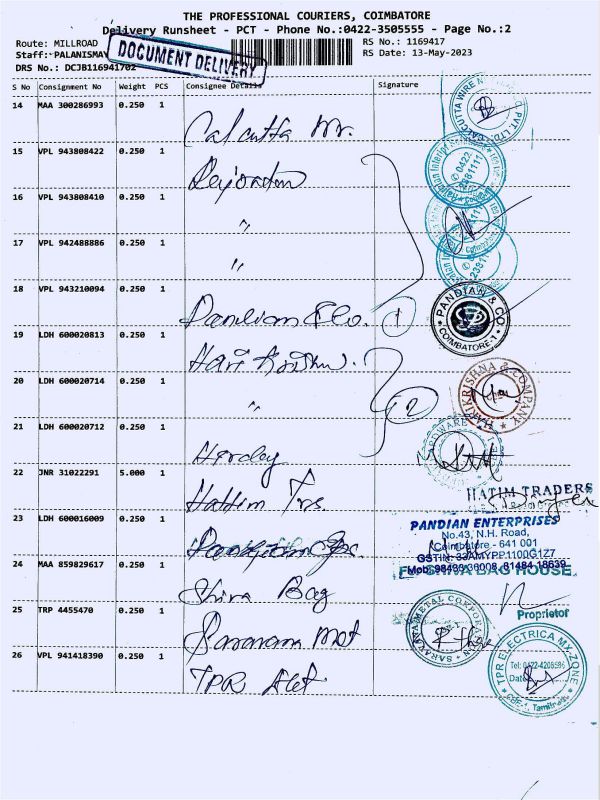 THE PROFESSIONAL COURIERS, COIMBATORE
Delivery Runsheet - PCT - Phone No.:0422-3505555 - Page No.:2
Route: MILLROAD RS No.: 1169417
Staff: PALANISMAY RS Date: 13-May-2023
DOCUMENT DELIVERY
DRS No.: DCJB116941702
S No Consignment No Weight PCS Consignee Details Signature
14 MAA 300286993 0.250 1
Calcutta Wr.
15 VPL 943808422 0.250 1
16 VPL 943808410 0.250 1
"
17 VPL 942488886 0.250 1
"
18 VPL 943210094 0.250 1
Pandian & Co. 1
PANDIAN & CO. COIMBATORE-1
19 LDH 600020813 0.250 1
Hari Krishna.
20 LDH 600020714 0.250 1
" 2
HARIKRISHNA & COMPANY
21 LDH 600020712 0.250 1
22 JNR 31022291 5.000 1
Hattim Trs.
HATIM TRADERS
23 LDH 600016009 0.250 1
PANDIAN ENTERPRISES
No.43, N.H. Road,
Coimbatore - 641 001
GSTIN: 33AMYPP1100G1Z7
24 MAA 859829617 0.250 1
Shiva Bag
SHIVA BAG HOUSE
Proprietor
25 TRP 4455470 0.250 1
Saravana Met
SARAVANA METAL CORPORATION
26 VPL 941418390 0.250 1
TPR Elet
TPR ELECTRICA MX-ZONE
Tel: 0422-4206596